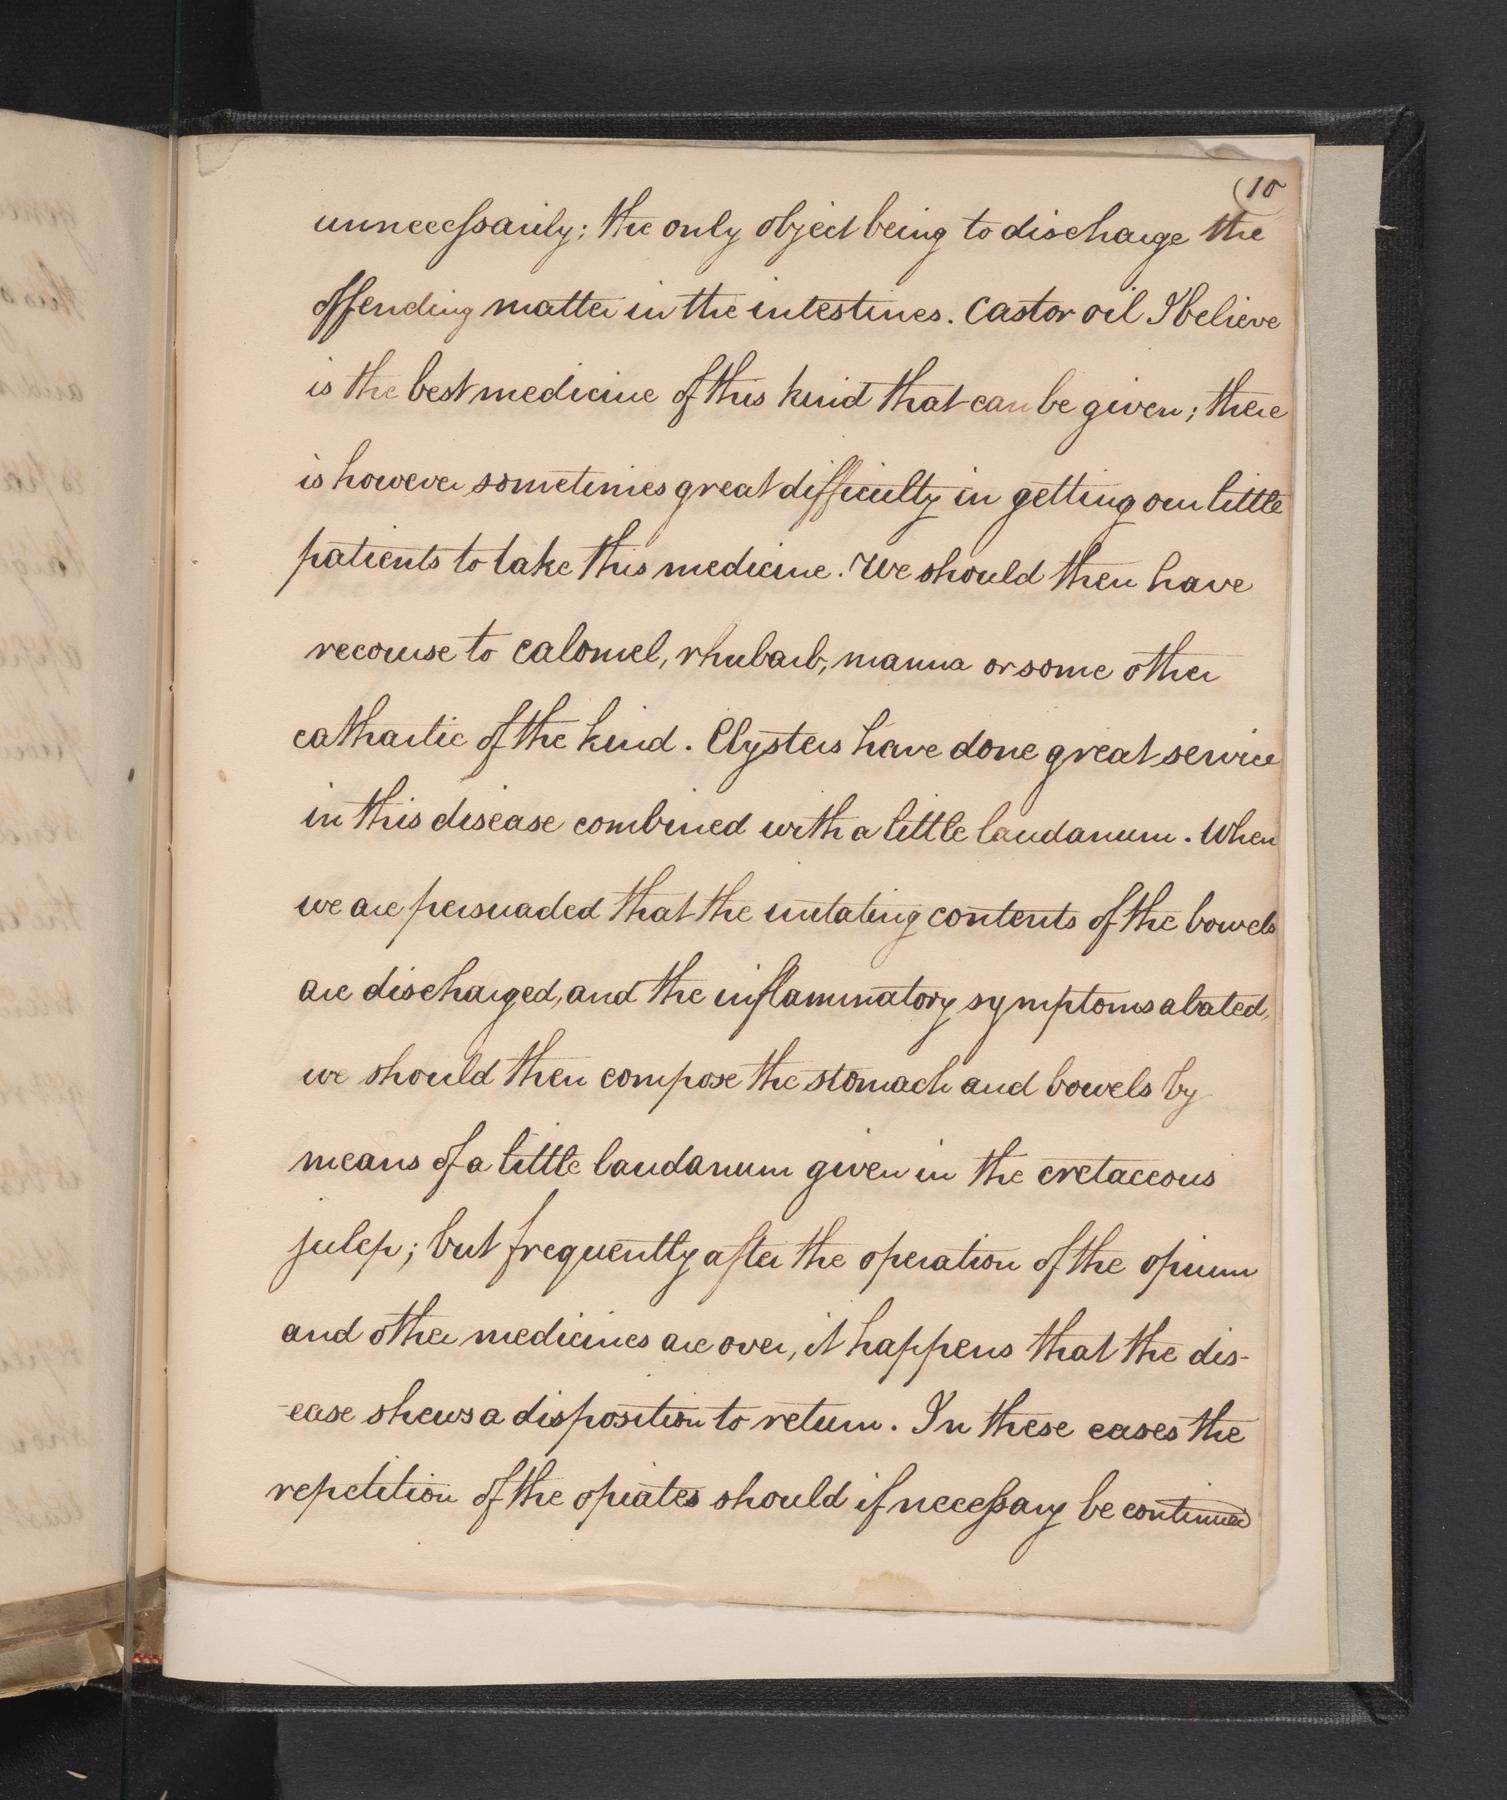 (10
unnecessarily; the only object being to discharge the
offending matter in the intestines. Castor oil I believe
is the best medicine of this kind that can be given; there
is however sometimes great difficulty in getting our little
patients to take this medicine. We should then have
recourse to calomel, rhubarb, manna or some other
cathartic of the kind. Clysters have done great service
in this disease combined with a little laudanum. When
we are persuaded that the irritating contents of the bowels
are discharged, and the inflammatory symptoms abated,
we should then compose the stomach and bowels by
means of a little laudanum given in the cretaceous
julep; but frequently after the operation of the opium
and other medicines are over, it happens that the dis-
-ease shews a disposition to return. In these cases the
repetition of the opiates should if necessary be continued